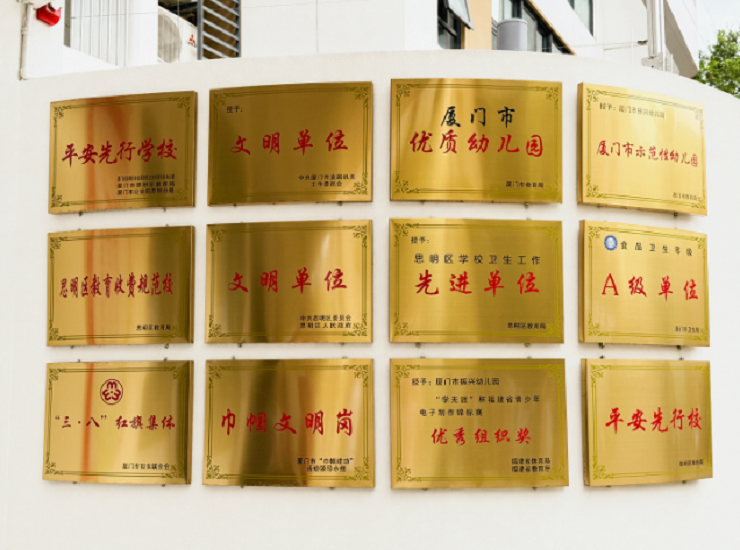 平安先行学校
授予:
文明单位
中共厦门市直属机关
工作委员会
厦门市
优质幼儿园
厦门市教育局
授予:厦门市振兴幼儿园
厦门市示范性幼儿园
思明区教育收费规范校
思明区教育局
文明单位
中共思明区委员会
思明区人民政府
授予:
思明区学校卫生工作
先进单位
思明区教育局
食品卫生等级
A级单位
“三·八”红旗集体
巾帼文明岗
厦门市“巾帼建功”
活动领导小组
授予:厦门市振兴幼儿园
福建省青少年
电子制作锦标赛
优秀组织奖
福建省体育局
福建省教育厅
平安先行校